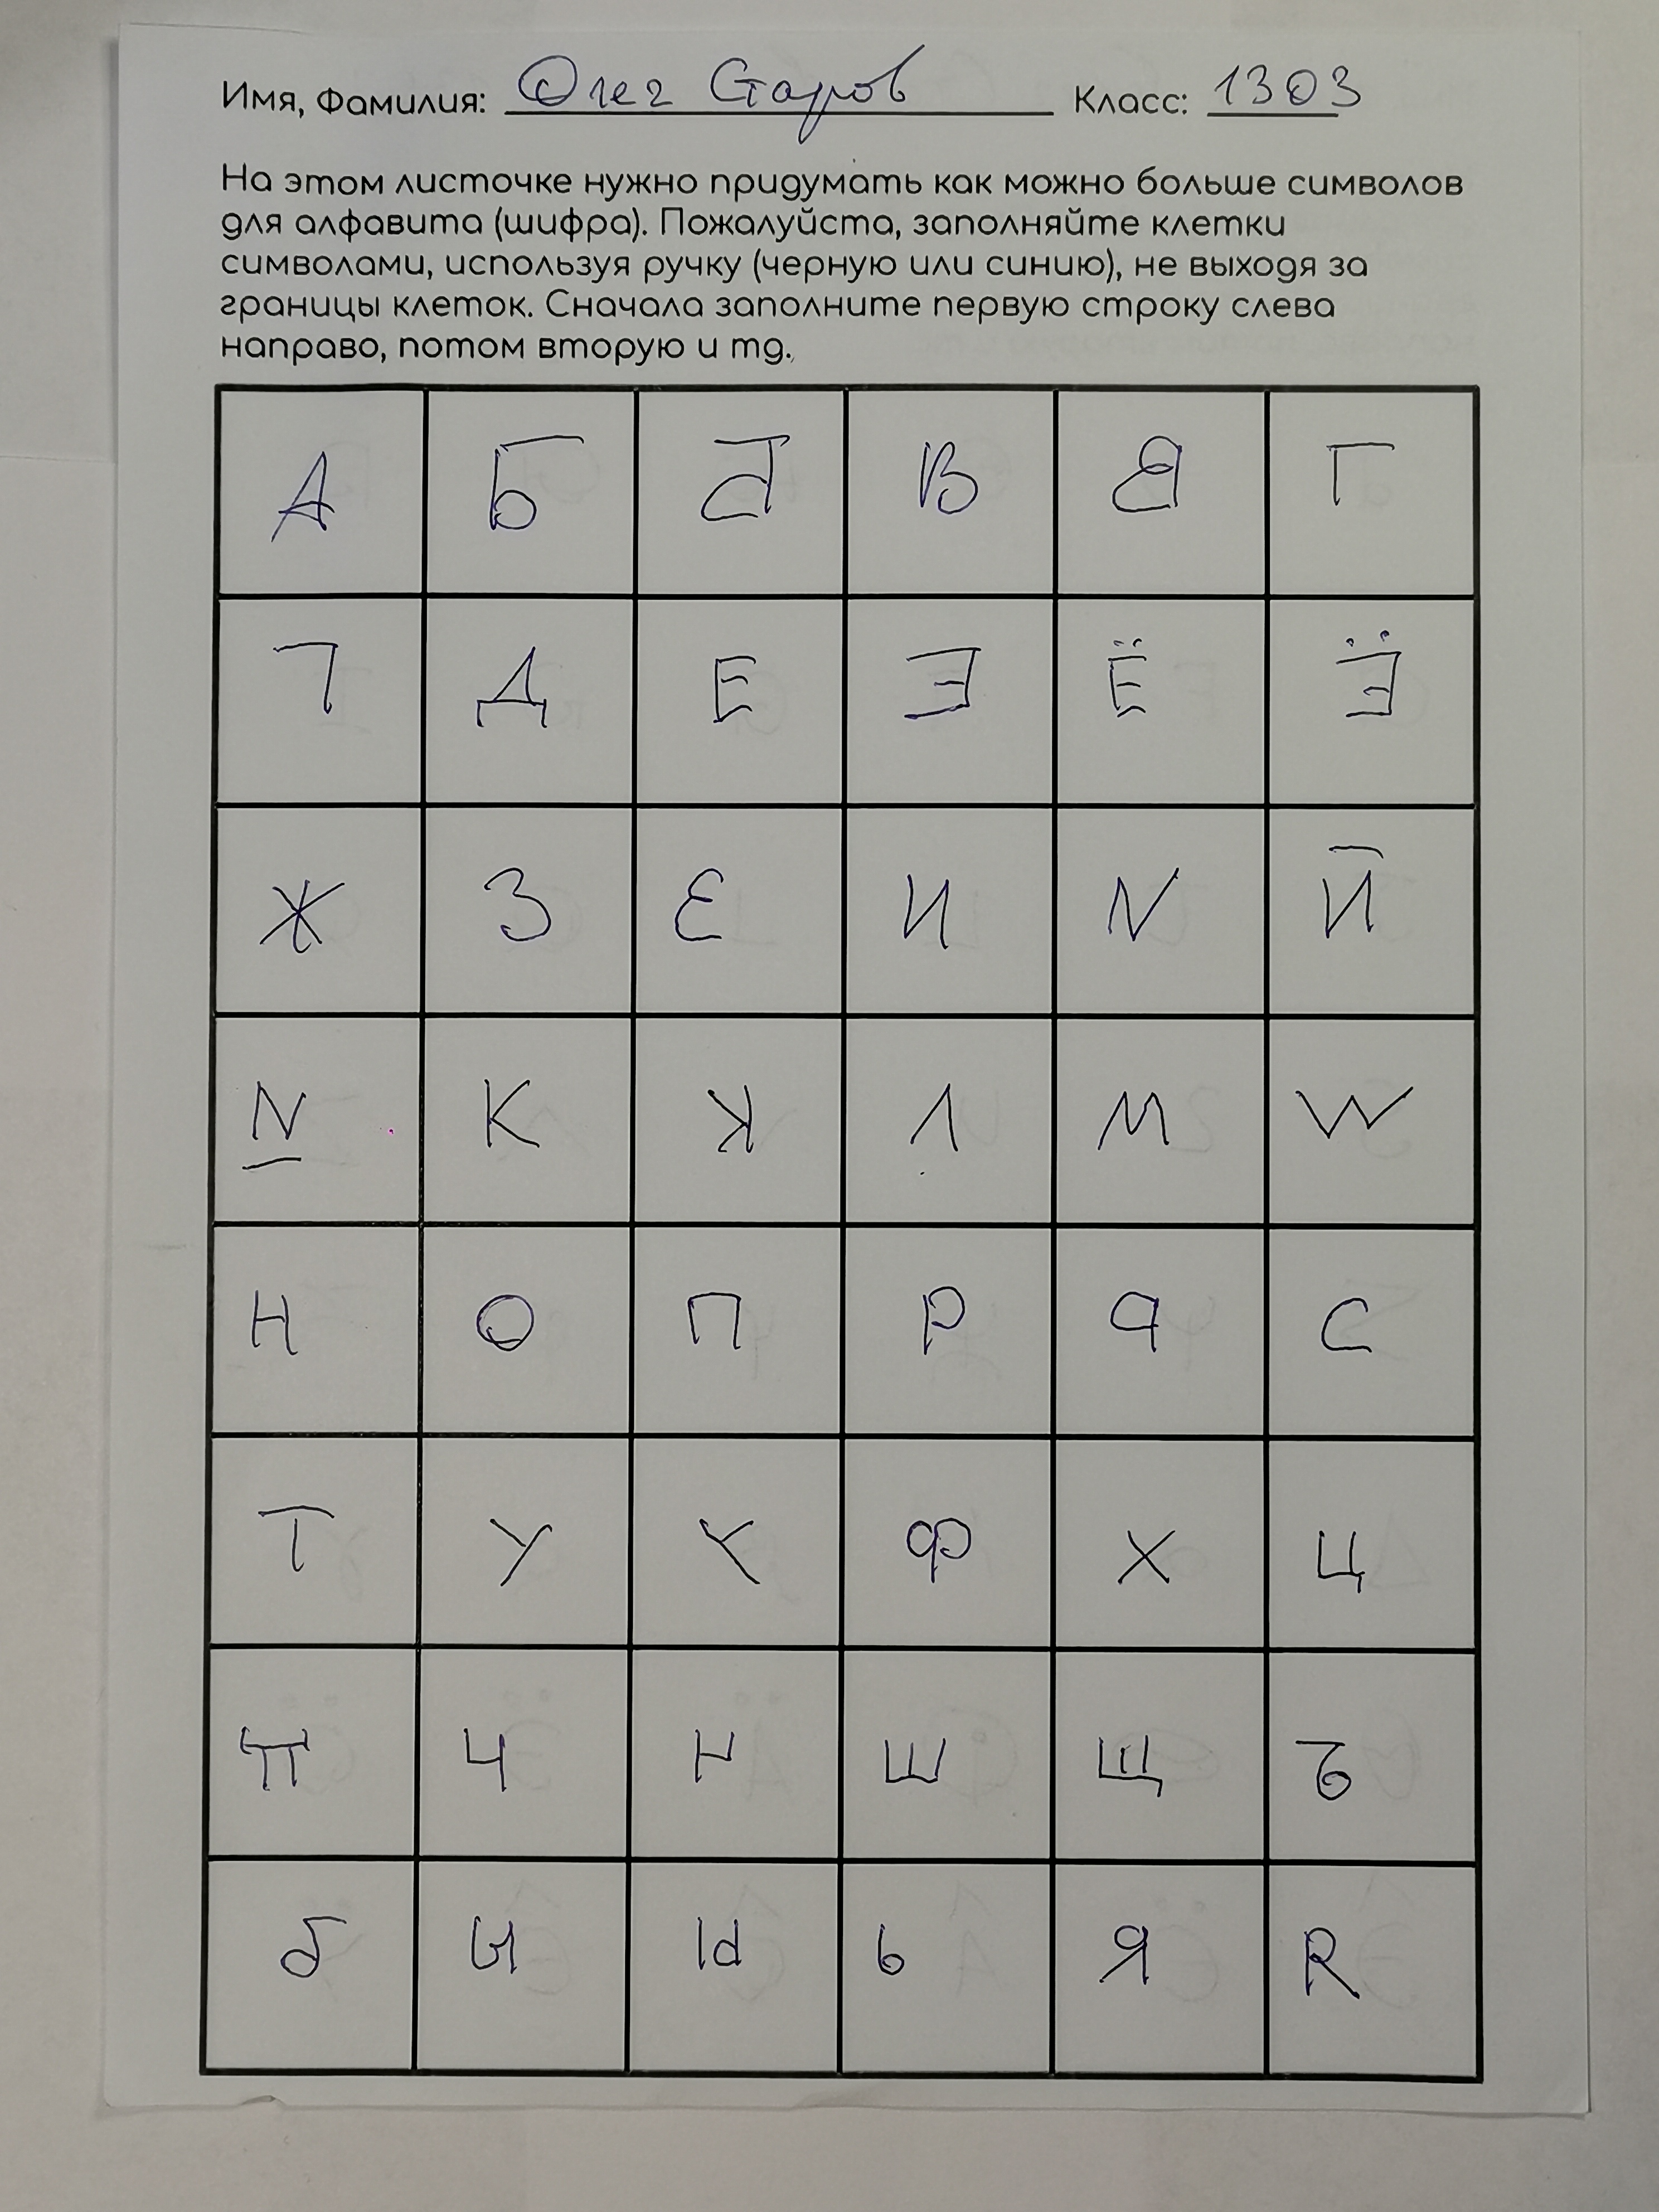 Имя, Фамилия: Олег Старов Класс: 1303
На этом листочке нужно придумать как можно больше символов
для алфавита (шифра). Пожалуйста, заполняйте клетки
символами, используя ручку (черную или синию), не выходя за
границы клеток. Сначала заполните первую строку слева
направо, потом вторую и тд.
А Б В Г
Д Е Ǝ Ё Ǝ̈
Ж З Ɛ И N Й
N К Л М W
Н О П Р ꟼ С
Т У Ф Х Ц
Ч Ш Щ Ъ
Ы Ь Я R